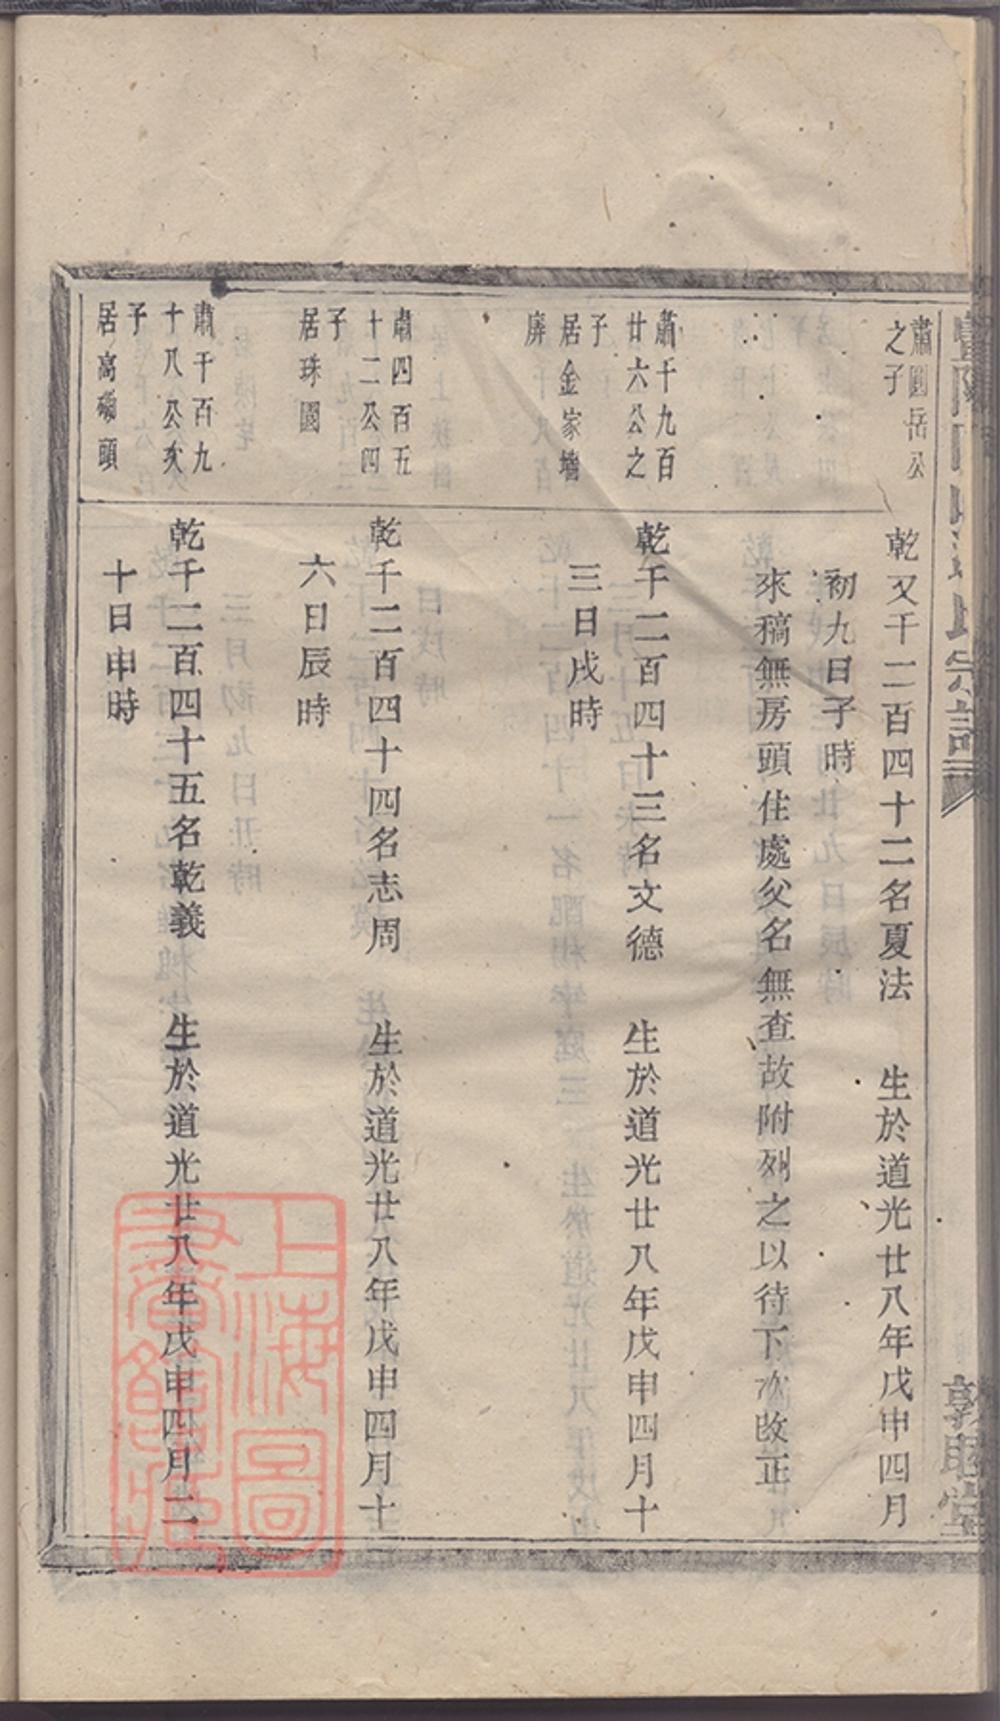 宗譜
敦睦堂
肅圓岳公
之子
乾又千二百四十二名夏法 生於道光廿八年戊申四月
初九日子時
來稿無房頭住處父名無查故附列之以待下次改正
肅千九百
廿六公之
子
居金家墻
屏
乾千二百四十三名文德 生於道光廿八年戊申四月十
三日戌時
肅四百五
十二公四
子
居珠園
乾千二百四十四名志周 生於道光廿八年戊申四月十
六日辰時
肅千百九
十八公亥
子
居高磡頭
乾千二百四十五名乾義 生於道光廿八年戊申四月二
十日申時
上海圖
書館藏